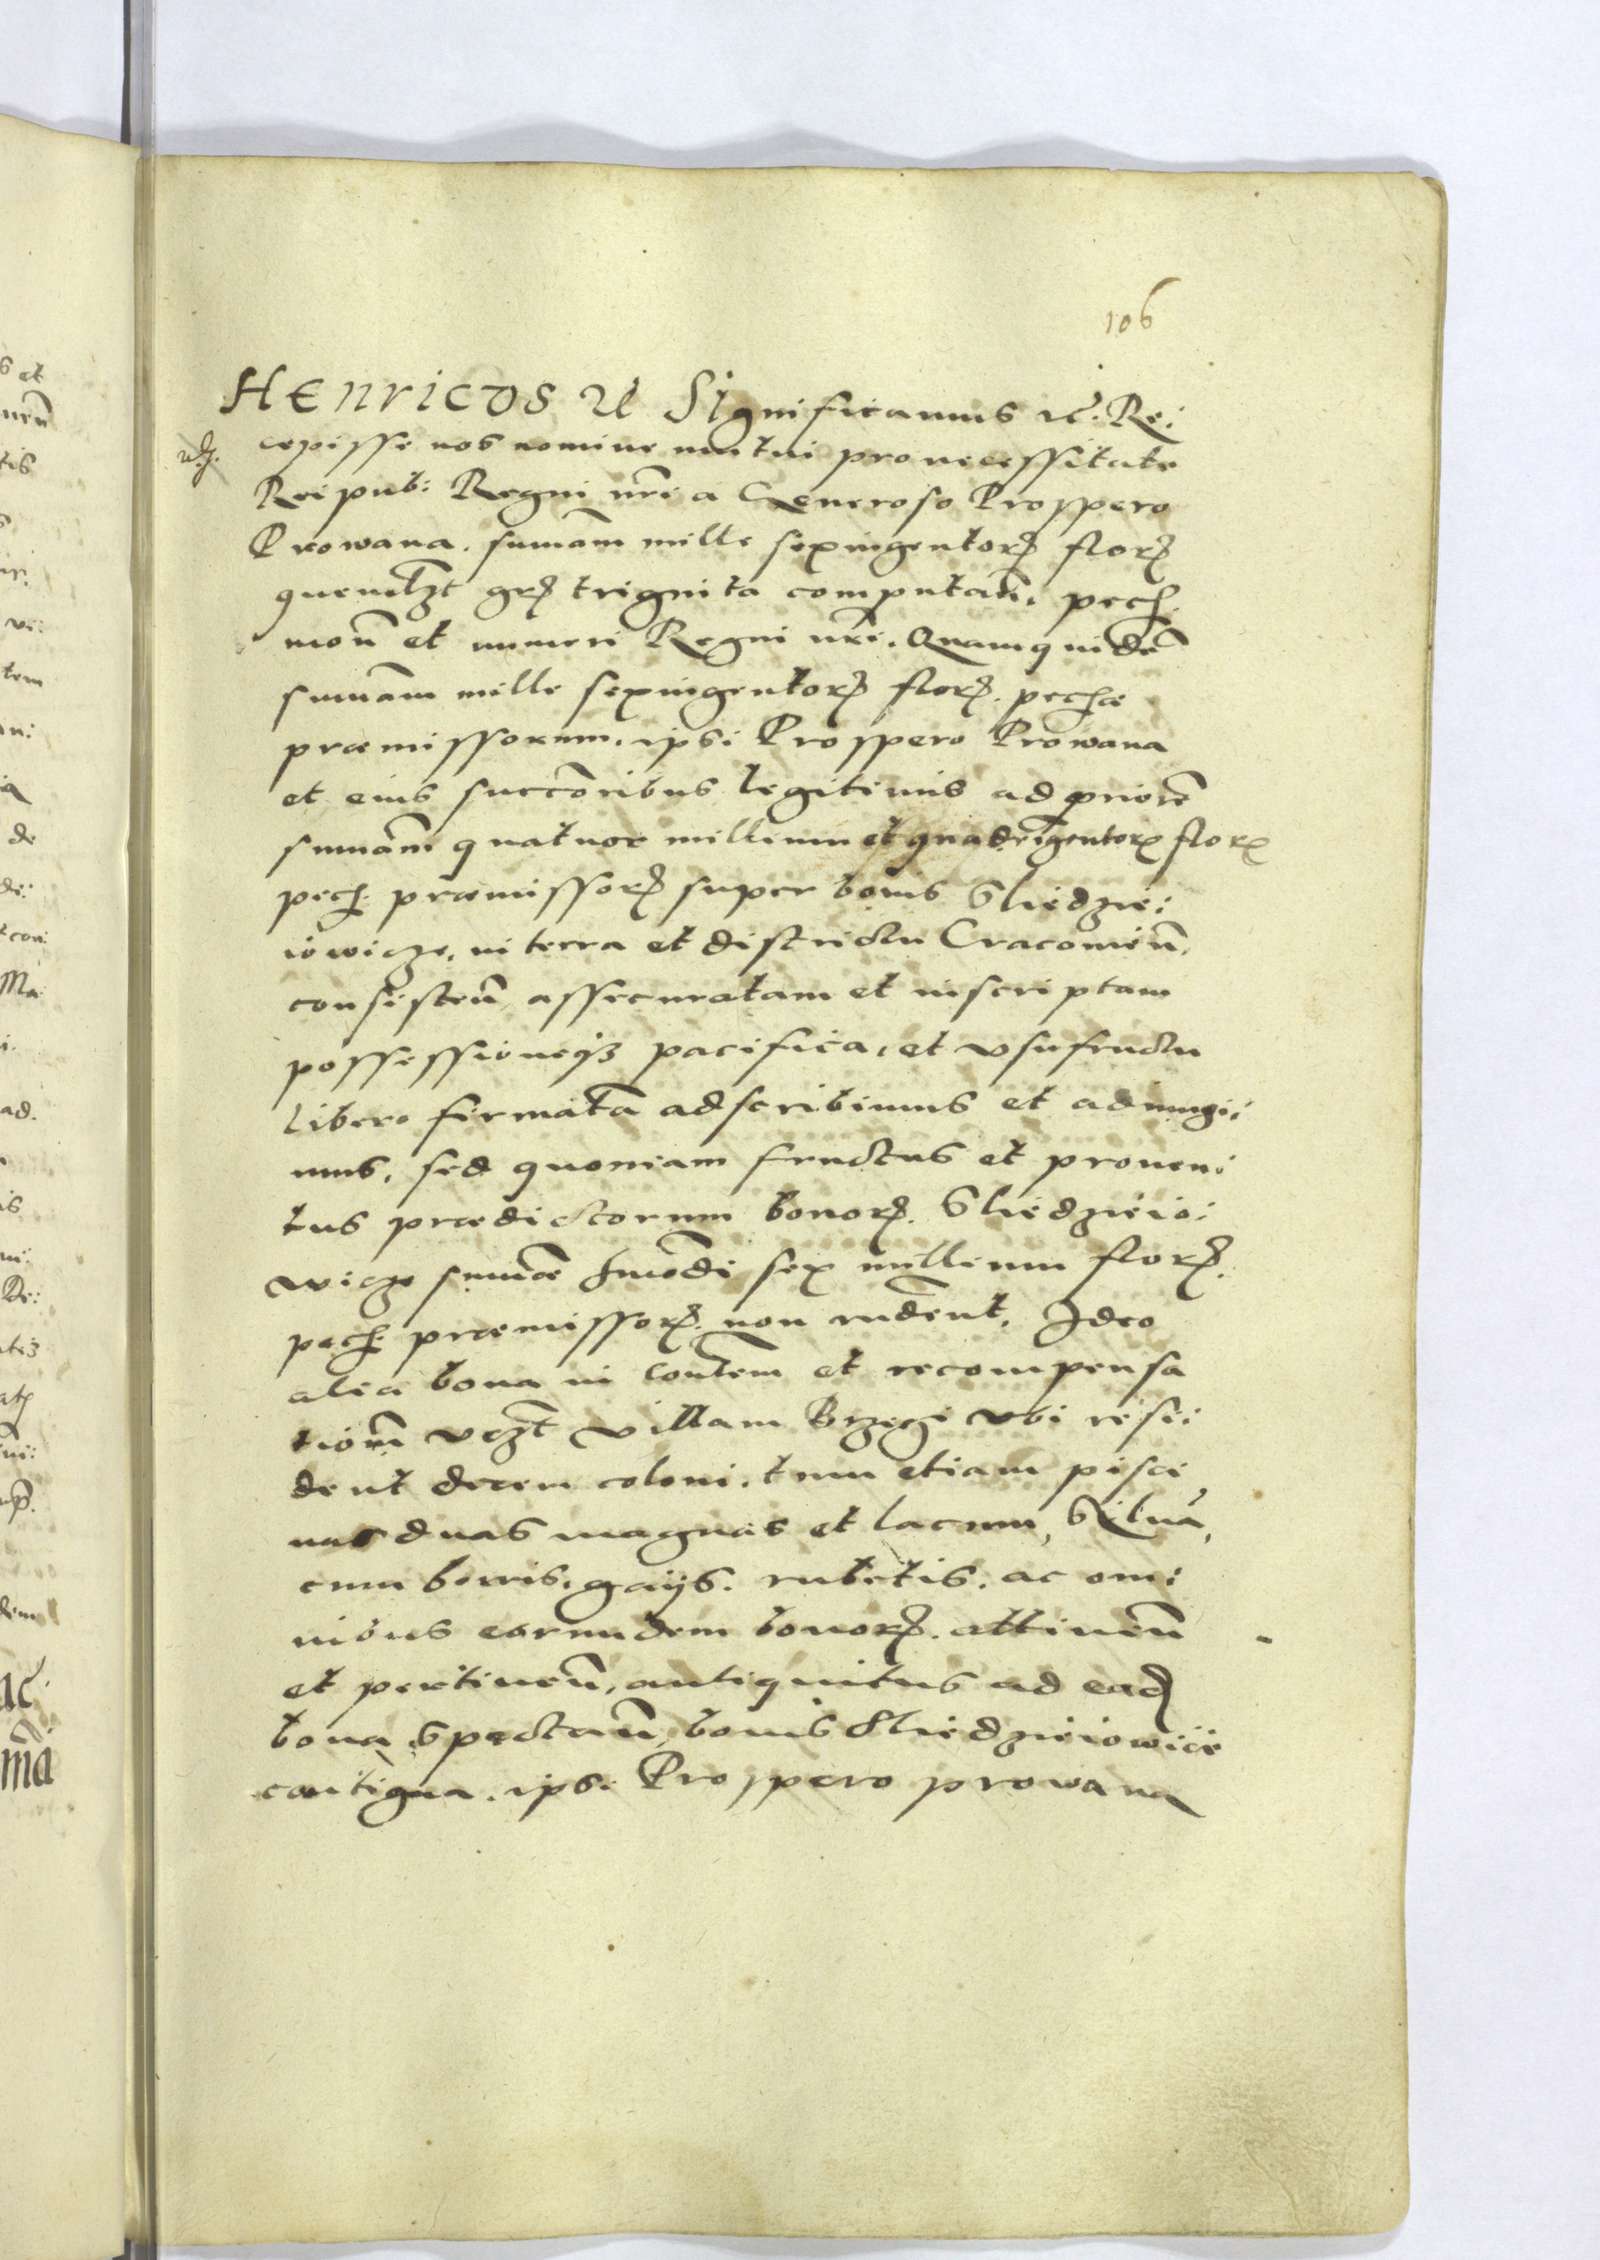 106
HENRICUS etc Significamus etc. Re:
cepisse nos nomine mutui pro necessitate
Reipub: Regni nri a Generoso Prospero
Prowana. sumam mille sexingentorum floren
quemlibet grorum trignita computan. pecun.
mon et numeri Regni nri. Quamquidem
sumam mille sexingentorum florenorum. pecuniae
praemissorum. ipsi Prospero Prowana
et eius succoribus legitimis ad priorem
sumam quatuor millium et quadringentorum florenorum
pecun. praemissorum super bonis Sliedzie:
iowicze, in terra et districtu Cracouien.
consisten assecuratam et inscriptam
possessioneque pacifica, et vsufructu
libero firmatam adscribimus et adiungi:
mus, sed quoniam fructus et proueni
tus praedictorum bonorum. Sliedzieio:
wicze sumae huiusmodi sex millium florenorum.
pecun. praemissorum. non rudent, Ideo
alia bona in contem et recompensa
tionem vczt villam Brzegi vbi resi:
dent decem coloni, tum etiam pisci
nas duas magnas et lacum, Siluam,
cum borris, gaijs. rubetis. ac omi
nibus earumdem bonorum. attinen
et pertinen, antiquitus ad eadem
bona spectan, bonis Sliedzieiowice
contigua. ipsi Prospero prowana